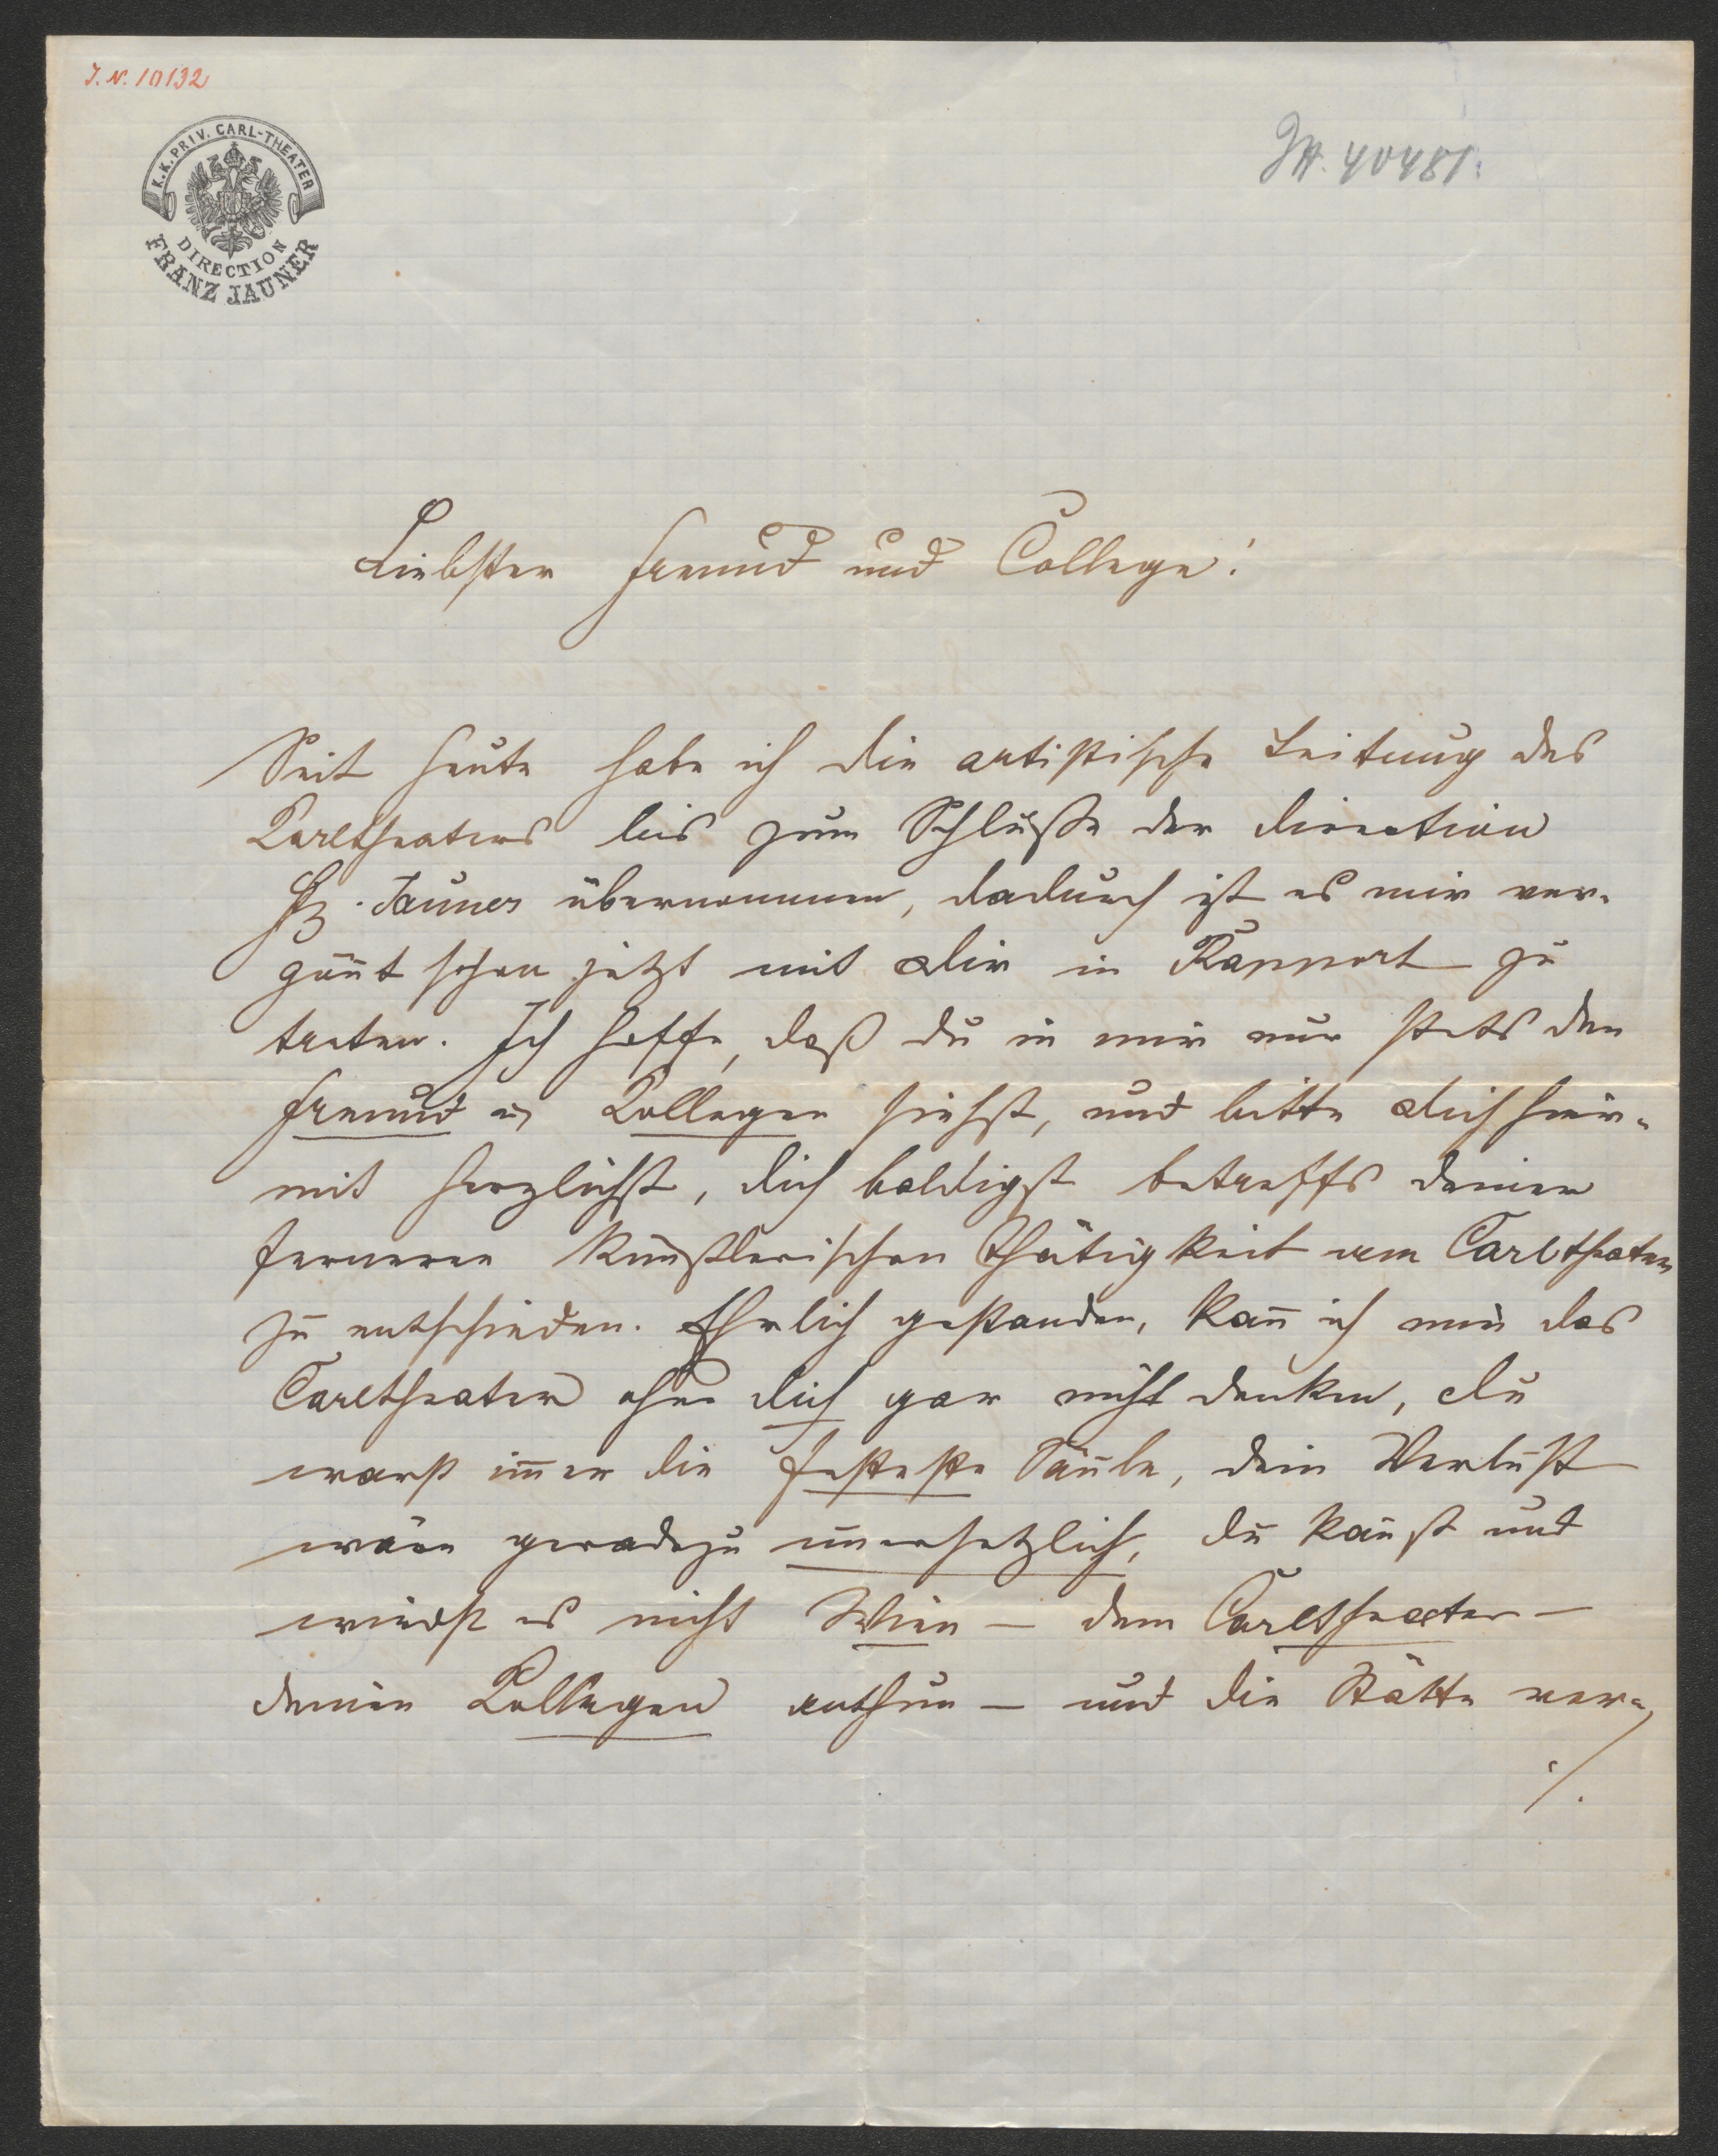 J. N. 10132
K. K. PRIV. CARL-THEATER
DIRECTION
FRANZ JAUNER
40481.
Liebster Freund und College!
Seit heute habe ich die artistische Leitung des
Carltheaters bis zum Schluße der Direction
Fz. Jauner übernommen, dadurch ist es mir ver-
gön̄t schon jetzt mit Dir in Rapport zu
treten. Ich hoffe, daß Du in mir nur stets den
Freund u Collegen siehst, und bitte Dich hier-
mit herzlichst, Dich baldigst betreffs Deiner
ferneren künstlerischen Thätigkeit am Carltheater
zu entscheiden. Ehrlich gestanden, kan̄ ich mir das
Carltheater ohne Dich gar nicht denken, Du
warst im̄er die festeste Säule, Dein Verlust
wäre geradezu unersetzlich, Du kan̄st und
wirdst es nicht Wien – dem Carltheater –
Deinen Collegen anthun – und die Stätte ver-
./.